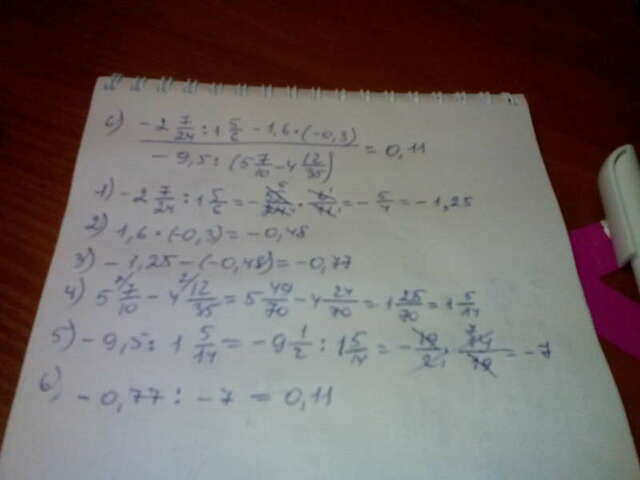 б) (-2 7/24 : 1 5/6 - 1,6 · (-0,3)) / (-9,5 : (5 7/10 - 4 12/35)) = 0,11
1) -2 7/24 : 1 5/6 = - 55/24 · 6/11 = - 5/4 = -1,25
2) 1,6 · (-0,3) = -0,48
3) -1,25 - (-0,48) = -0,77
4) 5 7/10 - 4 12/35 = 5 49/70 - 4 24/70 = 1 25/70 = 1 5/14
5) -9,5 : 1 5/14 = -9 1/2 : 1 5/14 = - 19/2 · 14/19 = -7
6) -0,77 : -7 = 0,11